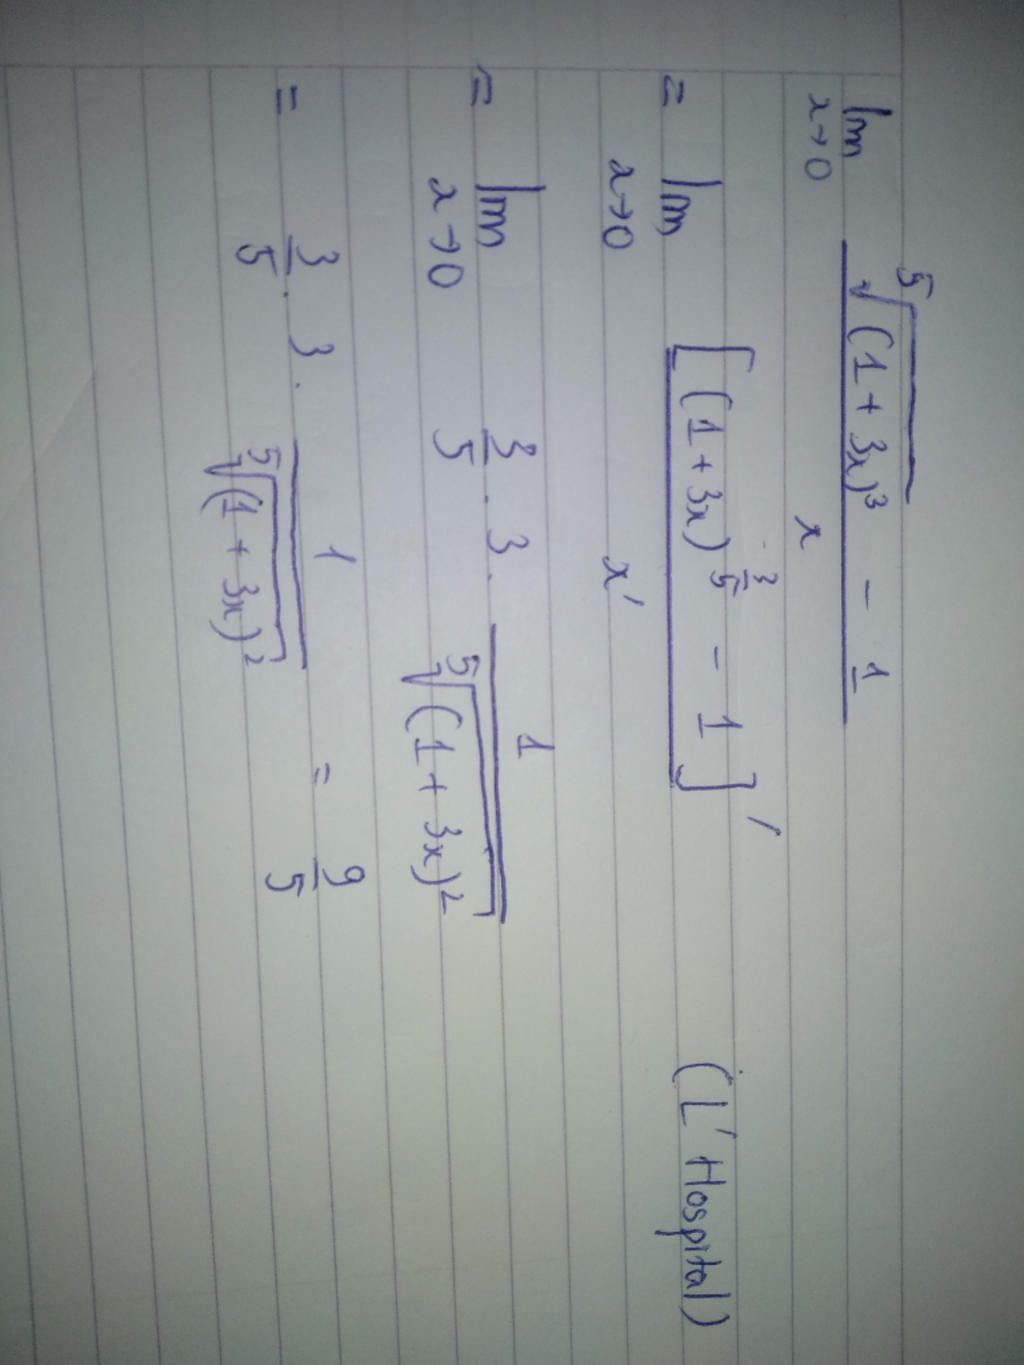 lim x→0 (⁵√(1+3x)³ - 1) / x
= lim x→0 [(1+3x)^(3/5) - 1]' / x' (L'Hospital)
= lim x→0 3/5 . 3 . 1 / ⁵√(1+3x)²
= 3/5 . 3 . 1 / ⁵√(1+3x)² = 9/5